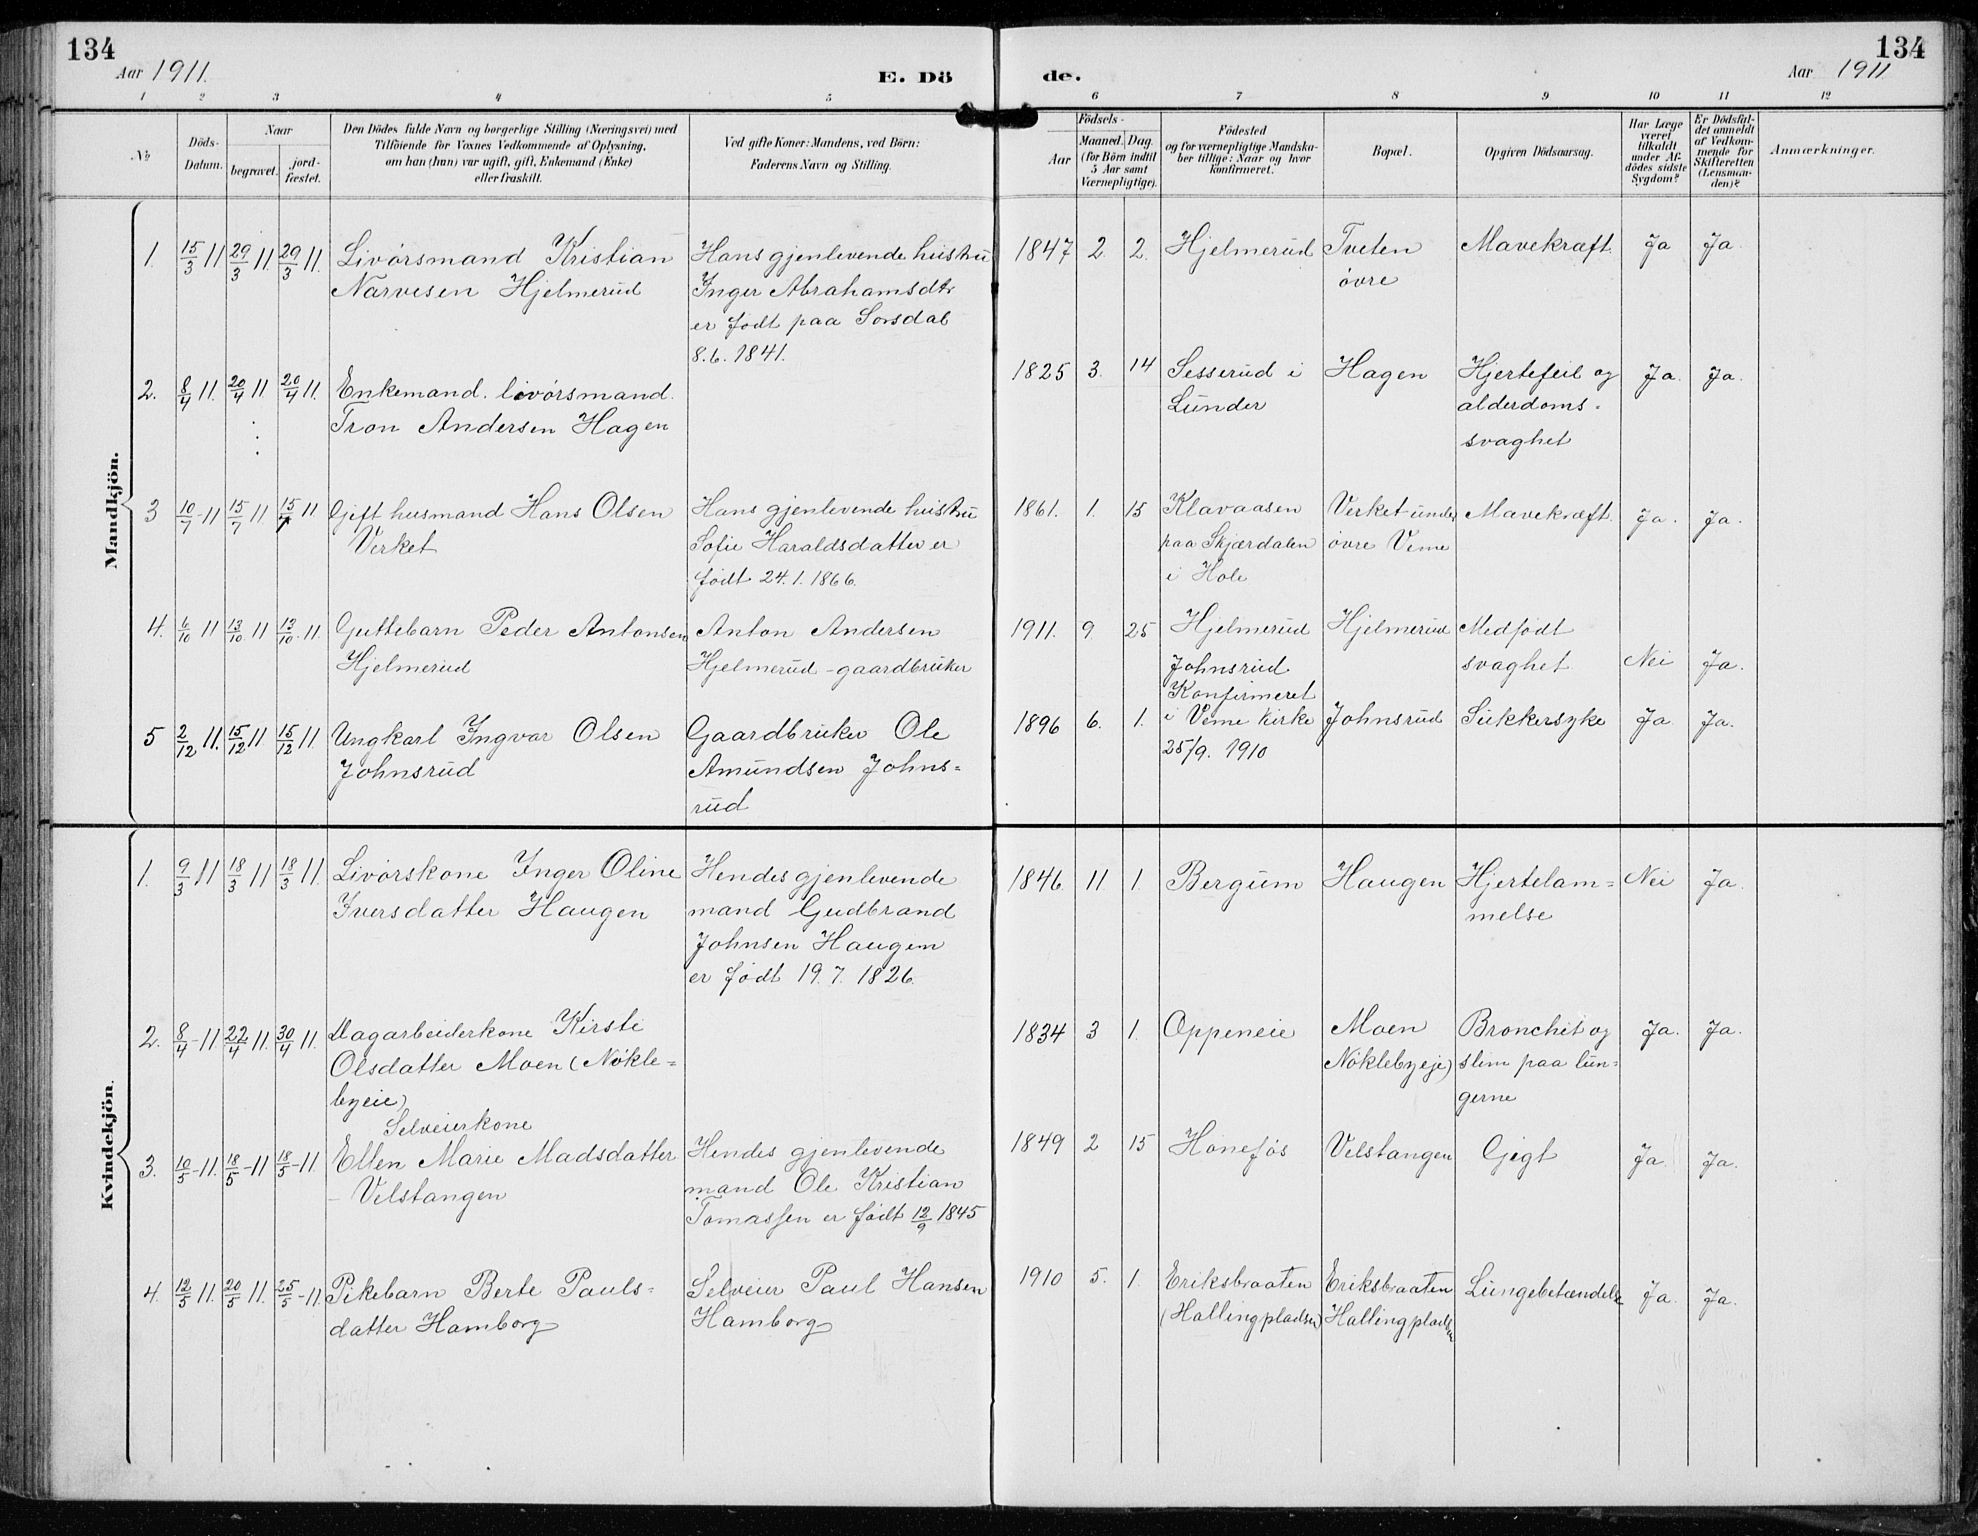 134
Aar 1911.
E. Dö
1 2 3 4 5
№
Döds-
Datum.
Naar
begravet.
jord-
fæstet.
Den Dödes fulde Navn og borgerlige Stilling (Næringsvei) med
Tilföiende for Voxnes Vedkommende af Oplysning,
om han (hun) var ugift, gift, Enkemand (Enke)
eller fraskilt.
Ved gifte Koner: Mandens, ved Börn:
Faderens Navn og Stilling.
de.
134
Aar 1911
6 7 8 9 10 11 12
Födsels-
Aar
Maaned. Dag.
(for Börn indtil
5 Aar samt
Værnepligtige).
Födested
og for værnepligtige Mandska-
ber tillige: Naar og hvor
konfirmeret.
Bopæl.
Opgiven Dödsaarsag.
Har Læge
været
tilkaldt
under Af-
dödes sidste
Sygdom?
Er Dödsfal-
det anmeldt
af Vedkom-
mende for
Skifteretten
(Lensman-
den)?
Anmærkninger.
Mandkjön.
1. 15/3 11 29/3 11. 29/3 11. Livørsmand Kristian
Narvesen Hjelmerud
Hans gjenlevende hustru
Inger Abrahamsdtr
er født paa Sørsdal
8.6.1841.
1847 2. 2. Hjelmerud Tveten Mavekræft. Ja Ja.
øvre
2. 8/4 11. 20/4 11 20/4 11. Enkemand. livørsmand.
Tron Andersen Hagen
1825 3. 14 Sesserud i Hagen Hjertefeil og Ja. Ja.
Lunder alderdoms-
svaghet
3 10/7 - 11 15/7 11 15/7 11 Gift husmand Hans Olsen
Verket
Hans gjenlevende hustru
Sofie Haraldsdatter er
født 24.1.1866.
1861. 1. 15 Klavaasen Verket under Mavekræft. Ja. Ja.
paa Skjærdalen øvre Veme
i Hole
4. 6/10 11 13/10 11 13/10. 11. Guttebarn Peder Antonsen
Hjelmerud
Anton Andersen
Hjelmerud - gaardbruker
1911. 9. 25 Hjelmerud Hjelmerud Medfødt
svaghet Nei Ja.
5 2/12 11. 15/12 11 15/12 11 Ungkarl Ingvar Olsen
Johnsrud
Gaardbruker Ole
Amundsen Johns=
rud
Johnsrud
Konfirmeret
1896 6. 1. i Veme kirke Johnsrud Sukkersyke Ja Ja.
25/9. 1910
Kvindekjön.
1. 9/3 11 18/3 11 18/3 11. Livørskone Inger Oline
Iversdatter Haugen
Hendes gjenlevende
mand Gudbrand
Johnsen Haugen
er født 19.7.1826.
1846. 11. 1. Bergum Haugen Hjertelam= Nei Ja.
melse
2. 8/4 - 11 22/4 11. 30/4 11. Dagarbeiderkone Kirsti
Olsdatter Moen (Nökle=
byeie)
1834 3 1. Oppeneie Moen Bronchit og Ja. Ja.
Nöklebyeje) slim paa lun=
gerne
Selveierkone
3. 10/5 - 11. 18/5 - 11 18/5 - 11 Ellen Marie Madsdatter
- Velstangen
Hendes gjenlevende
mand Ole Kristian
Tomassen er født 12/9 1845
1849 2 15 Hønefos Velstangen Gigt Ja. Ja.
4. 12/5 11. 20/5 11. 25/5 - 11. Pikebarn Berte Pauls-
datter Hamborg
Selveier Paul Hansen
Hamborg
1910 5. 1. Eriksbraaten Eriksbraaten Lungebetændelse Ja. Ja.
(Hallingpladsen) Hallingpladsen